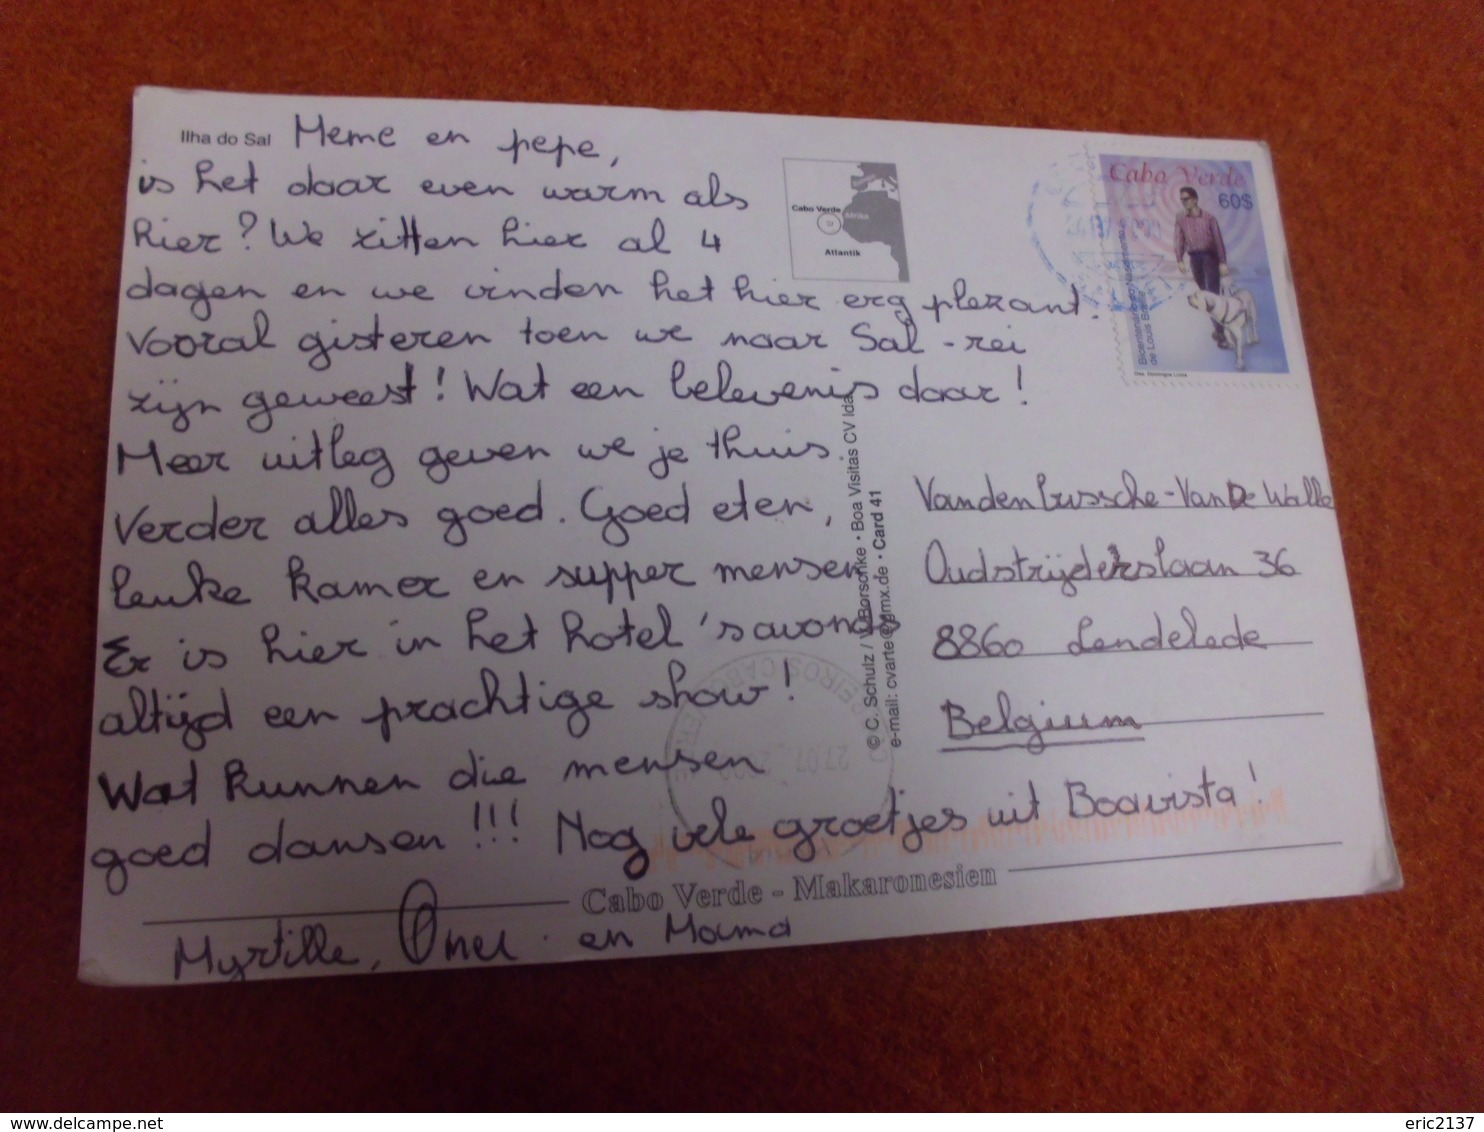 Ilha do Sal
Meme en pepe,
is het daar even warm als
hier? We zitten hier al 4
dagen en we vinden het hier erg plezant.
Vooral gisteren toen we naar Sal-rei
zijn geweest! Wat een belevenis daar!
Meer uitleg geven we je thuis.
Verder alles goed. Goed eten,
leuke kamer en supper mensen
Er is hier in het hotel 's avonds
altijd een prachtige show!
Wat kunnen die mensen
goed dansen!!! Nog vele groetjes uit Boavista!
Myrtille, Omer en Mama
Cabo Verde
Afrika
Atlantik
Cabo Verde
60$
Bicentenário do Nascimento
de Louis Braille
© C. Schulz / V. Borschke • Boa Visitas CV lda
e-mail: cvarte@gmx.de • Card 41
Vandenbussche-VanDe Walle
Oudstrijderslaan 36
8860 Lendelede
Belgium
27.07
CABO VERDE
Cabo Verde - Makaronesien
delcampe.net
eric2137